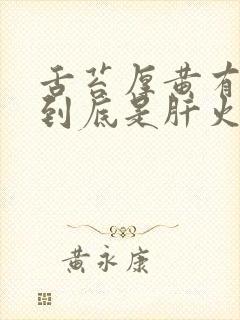 舌苔厚黄有
到底是肝火
黄永康